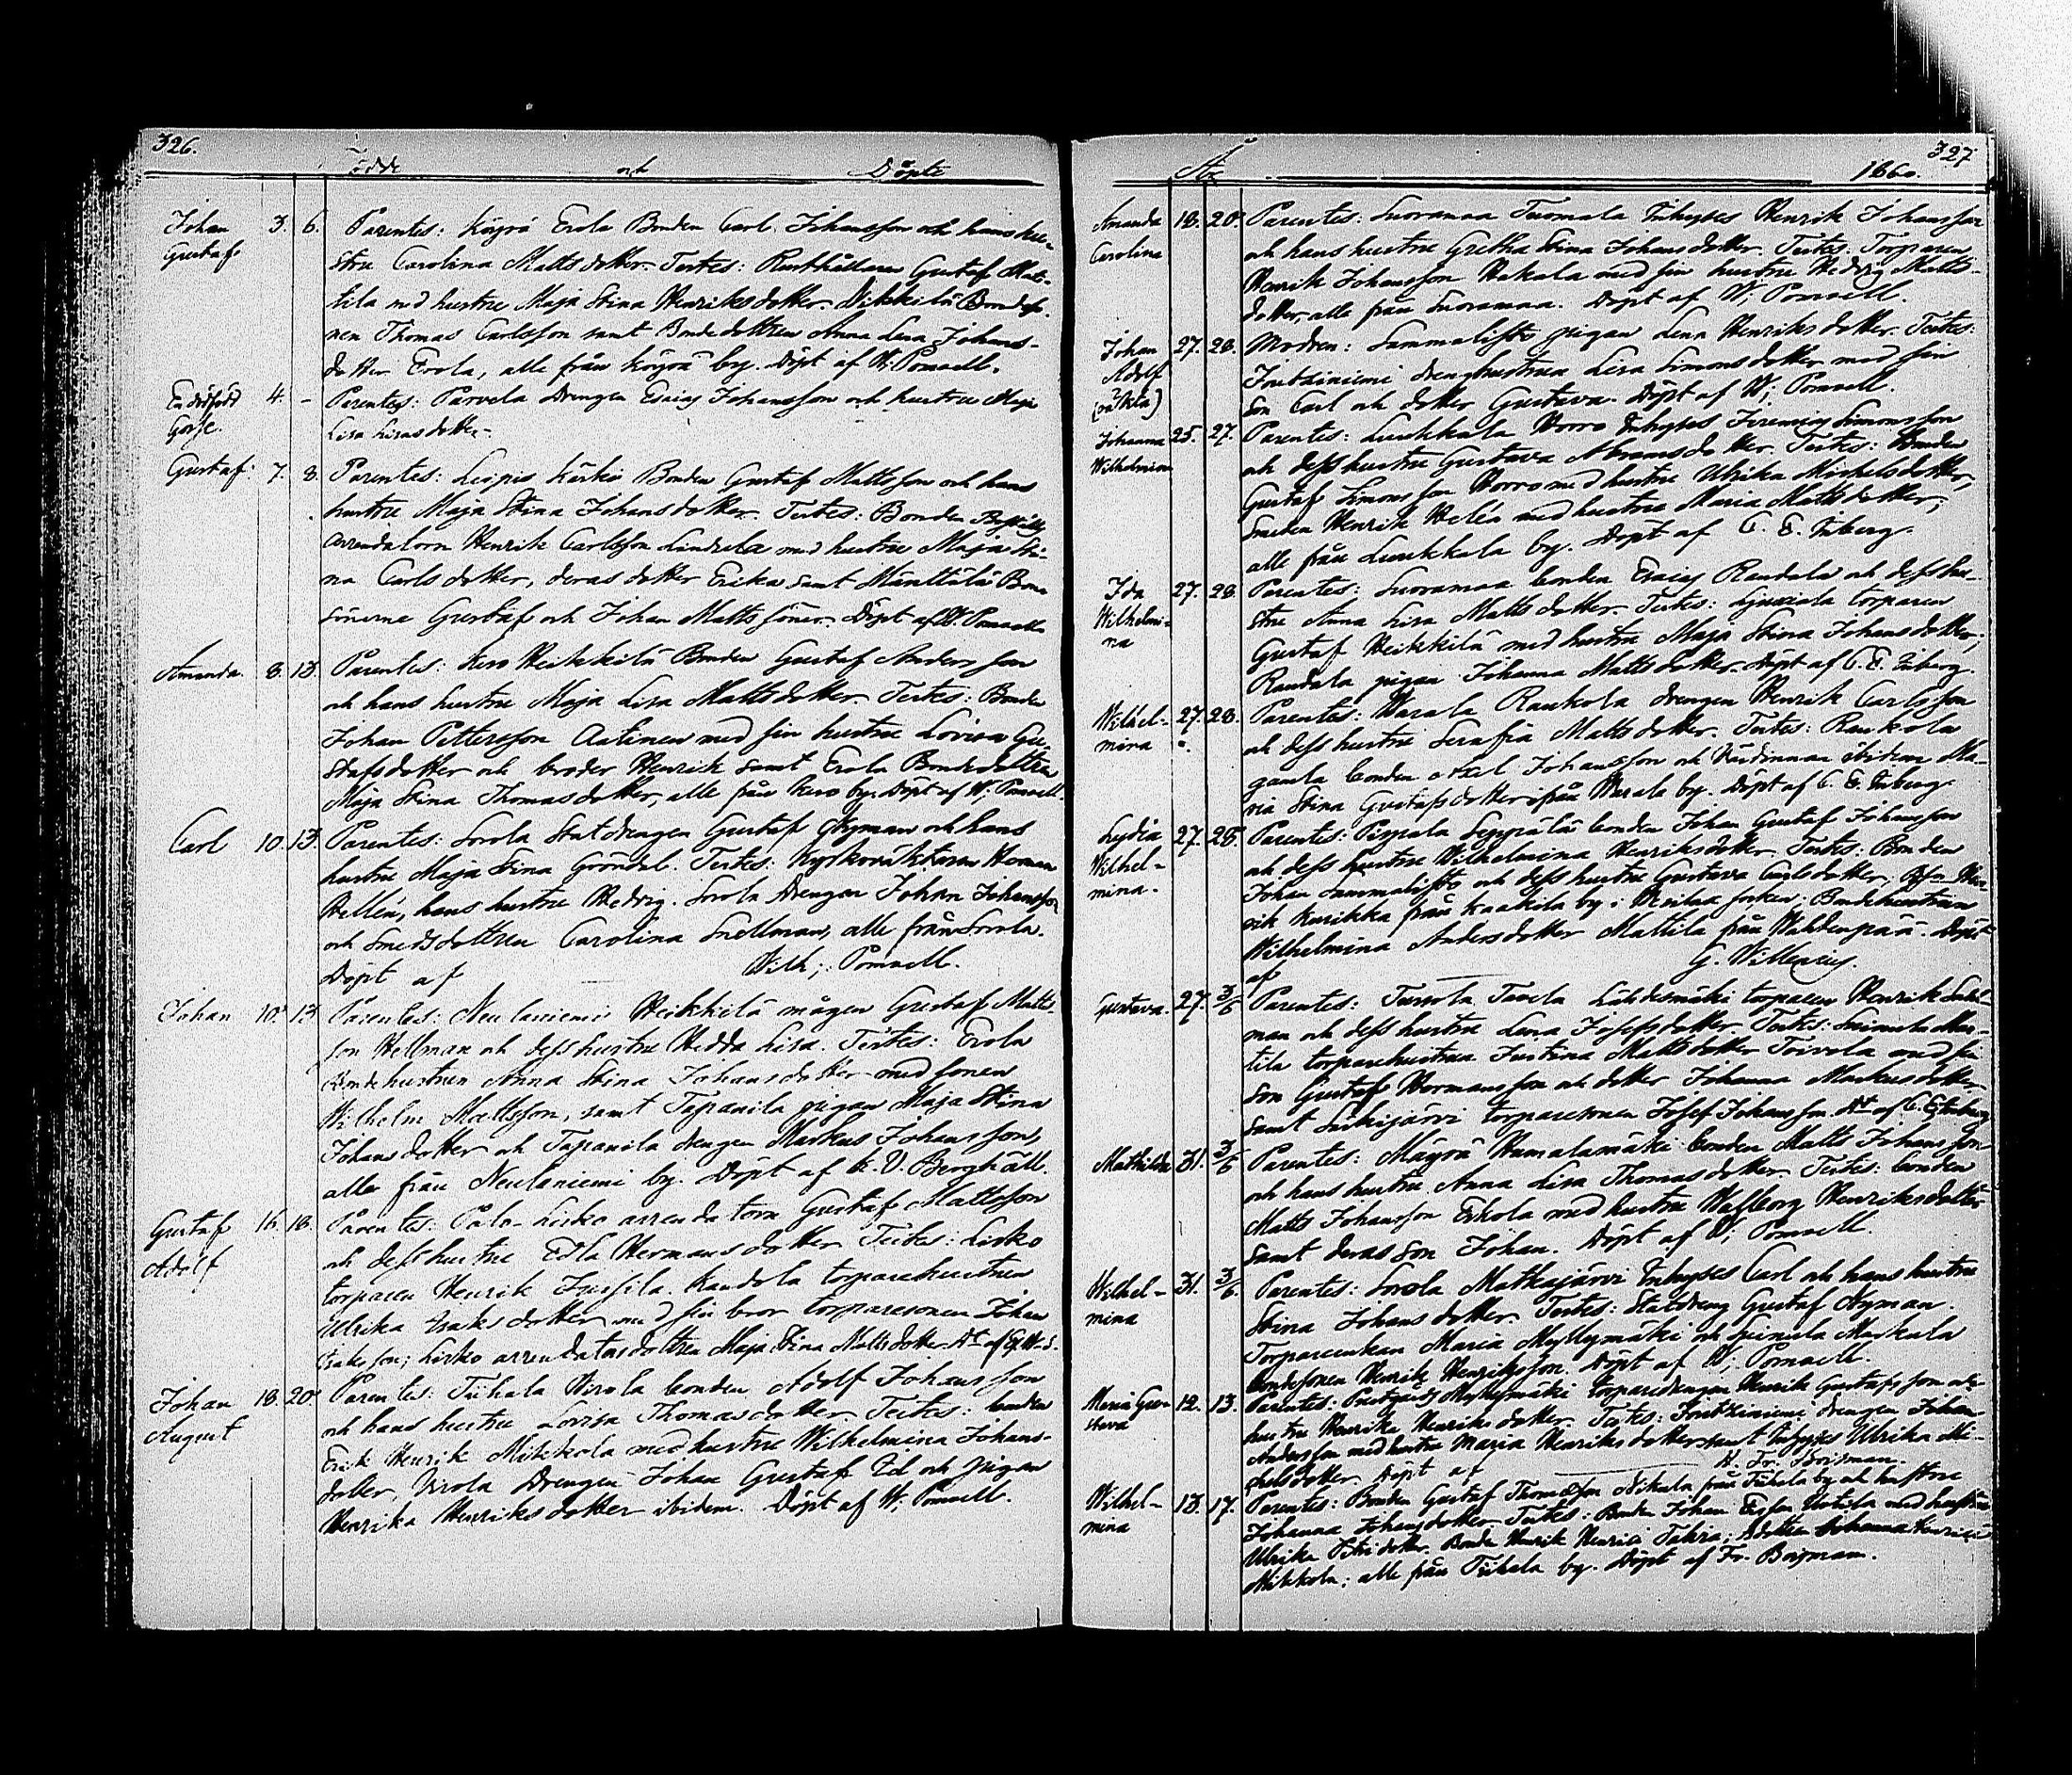 326.
Födde och Döpte
Johan 3. 6. Parentes: Köyrä Erola Bonden Carl Johansson och hans hu-
Gustaf stru Carolina Matts dotter. Testes: Rusthållaren Gustaf Mat-
tila med hustru Maja Stina Henriksdotter. Bondeso-
nen Thomas Carlsson samt Bondedottren Anna Lena Johans-
dotter Erola, alle från Köyrä by. Döpt af W; Pomoell.
En dödfödd 4. - Parentes: Parvela Drengen Esaias Johansson och hustru Maja
Gosse. Lisa Lisasdotter.
Gustaf 7. 8. Parentes: Leipis Bonden Gustaf Mattsson och hans
hustru Maja Stina Johansdotter. Testes: Bonden
arrendatorn Henrik Carlsson Lindula med hustru Maja Sti-
na Carlsdotter, deras dotter Erika samt Mänttälä
sönerne Gustaf och Johan Matts söner. Döpt af W. Pomoell
Amanda. 8. 13. Parentes: Kero Heikkilä Bonden Gustaf Andersson
och hans hustru Maja Lisa Mattsdotter. Testes: Bonden
Johan Pettersson Autinen med sin hustru Lovisa Gu-
stafsdotter och broder Henrik samt Erola Bondedottren
Maja Stina Thomasdotter, alle från Kero by. Döpt af W; Pomoell.
Carl 10. 13. Parentes: Sorola Statdrengen Gustaf Nyman och hans
hustru Maja Stina Gröndal. Testes: Kyrkoväktaren Herman
Hellén, hans hustru Hedvig. Sorola Drengen Johan Johansson
och Smedsdottren Carolina Snellman, alle från Sorola.
Döpt af Wilh; Pomoell.
Johan 10. 13. Parentes: Neulaniemi Heikkilä mågen Gustaf Matts-
son Hellman och dess hustru Hedda Lisa. Testes: Erola
Bondehustrun Anna Stina Johansdotter med sonen
Wilhelm Mattsson, samt Tapanila pigan Maja Stina
Johansdotter och Tapanila drengen Markus Johansson,
alle från Neulaniemi by. Döpt af K. V. Bergháll.
Gustaf 16. 18. Parentes: Palo-Lisko arrendatorn Gustaf Mattsson
Adolf och dess hustru Edla Hermansdotter. Testes: Lisko
torparen Henrik Jussila. Kandola torparehustrun
Ulrika Isaksdotter med sin bror torparesonen Johan
Isaksson; Lisko arrendatorsdottren Maja Stina Mattsdotter.
Johan 18. 20. Parentes: Tiihala Bonden Adolf Johansson
August och hans hustru Lovisa Thomasdotter. Testes: bonden
Erik Henrik Mikkola med hustru Wilhelmina Johans-
dotter, Drengen Johan Gustaf och pigan
Henrika Henriksdotter ibidem. Döpt af W; Pomoell.
År 1860. 327
Amanda 18. 20. Parentes: Suoramaa Tuomala Inhyses Henrik Johansson
Carolina och hans hustru Gretha Stina Johansdotter. Testes: Torparen
Henrik Johansson Hakala med sin hustru Hedvig Matts-
dotter, alle från Suoramaa. Döpt af W; Pomoell.
Johan 27. 28. Modren: Sammalisto pigan Lena Henriksdotter. Testes:
Adolf drenghustrun Lisa Simonsdotter med sin
(oäkta) son Carl och dotter Gustava. Döpt af W; Pomoell.
Johanna 25. 27. Parentes: Liukkala Horro Inhyses Jeremias Simonsson
Wilhelmina och dess hustru Gustava Abramsdotter. Testes: Bonden
Gustaf Simonsson Horro med hustru Ulrika Michelsdotter,
Smeden Henrik Helén med hustru Maria Mattsdotter;
alle från Liukkala by. Döpt af C. E. Inberg.
Ida 27. 28. Parentes: Suoramaa bonden Esaias Randala och dess hu-
Wilhelmi- stru Anna Lisa Mattsdotter. Testes: torparen
na Gustaf Heikkilä med hustru Maja Stina Johansdotter;
Randala pigan Johanna Mattsdotter. Döpt af C. E. Inberg.
Wilhel- 27. 28. Parentes: Warala Raukola drengen Henrik Carlsson
mina och dess hustru Serafia Mattsdotter. Testes: Raukola
gamla bonden Axel Johansson och Värdinnan ibidem Ma-
ria Stina Gustafsdotter ifrån Warala by. Döpt af C. E. Inberg.
Lydia 27. 28. Parentes: Pispala Seppälä bonden Johan Gustaf Johansson
Wilhel- och dess hustru Wilhelmina Henriksdotter. Testes: Bonden
mina. Johan Sammalisto och dess hustru Gustava Carlsdotter; Hen-
rik Kurikka från Kaakila by i socken; Bondehustrun
Wilhelmina Andersdotter Mattila från Wahdenpää. Döpt
af G. Willenius.
Gustava. 27. 3/6 Parentes: Tursola Tavela Lähdesmäki torparen Henrik
man och dess hustru Lena Josefsdotter. Testes:
tila torparehustrun Justina Mattsdotter Toivola med sin
son Gustaf Hermansson och dotter Johanna Markusdotter
samt torparesonen Josef Johansson.
Mathilda 31. 3/6 Parentes: Mäyrä Hamalamäki bonden Matts Johansson
och hans hustru Anna Lisa Thomasdotter. Testes: bonden
Matts Johansson Eskola med hustru Walborg Henriksdotter
samt deras son Johan. Döpt af W; Pomoell.
Wilhel- 31. 3/6. Parentes: Sorola Matkajärvi Inhyses Carl och hans hustru
mina Stina Johansdotter. Testes: Statdreng Gustaf Nyman.
Torpareenkan Maria Myllymäki och
bondesonen Henrik Henriksson. Döpt af W; Pomoell.
Maria Gus- 12. 13. Parentes: Prestgårds Myllymäki torparedrengen Henrik Gustafsson och
tava hustru Henrika Henriksdotter. Testes: drengen Johan
Andersson med hustru Maria Henriksdotter samt Inhyses Ulrika Mi-
chelsdotter. Döpt af A. Fr. Borgman.
Wilhel- 13. 17. Parentes: Bonden Gustaf Thomasson Nikula från Tiihala by och hustru
mina Johanna Johansdotter. Testes: Bonden Johan med hustru
Ulrika Petridotter. Bonden Henrik Henric Johanna
Mikkola; alle från Tiihala by. Döpt af Fr. Borgman.